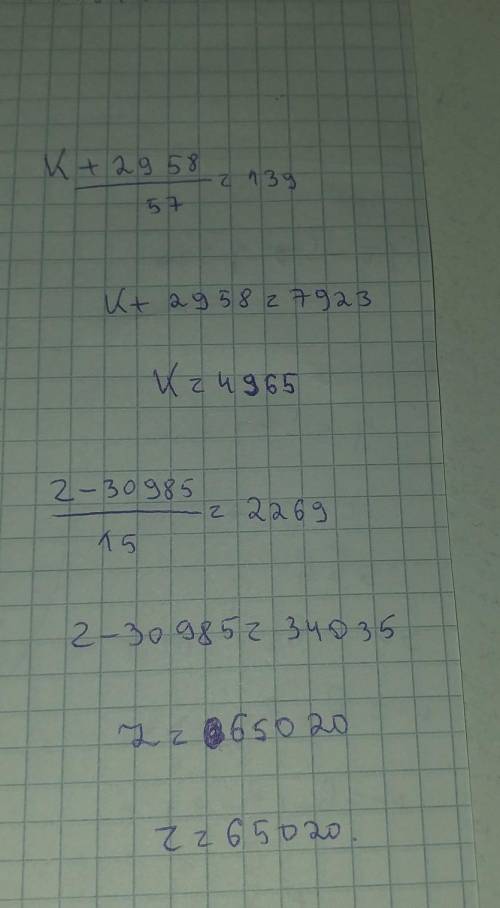 K + 2958
57 = 139
K + 2958 = 7923
K = 4965
z - 30985
15 = 2269
z - 30985 = 34035
z = 65020
z = 65020.